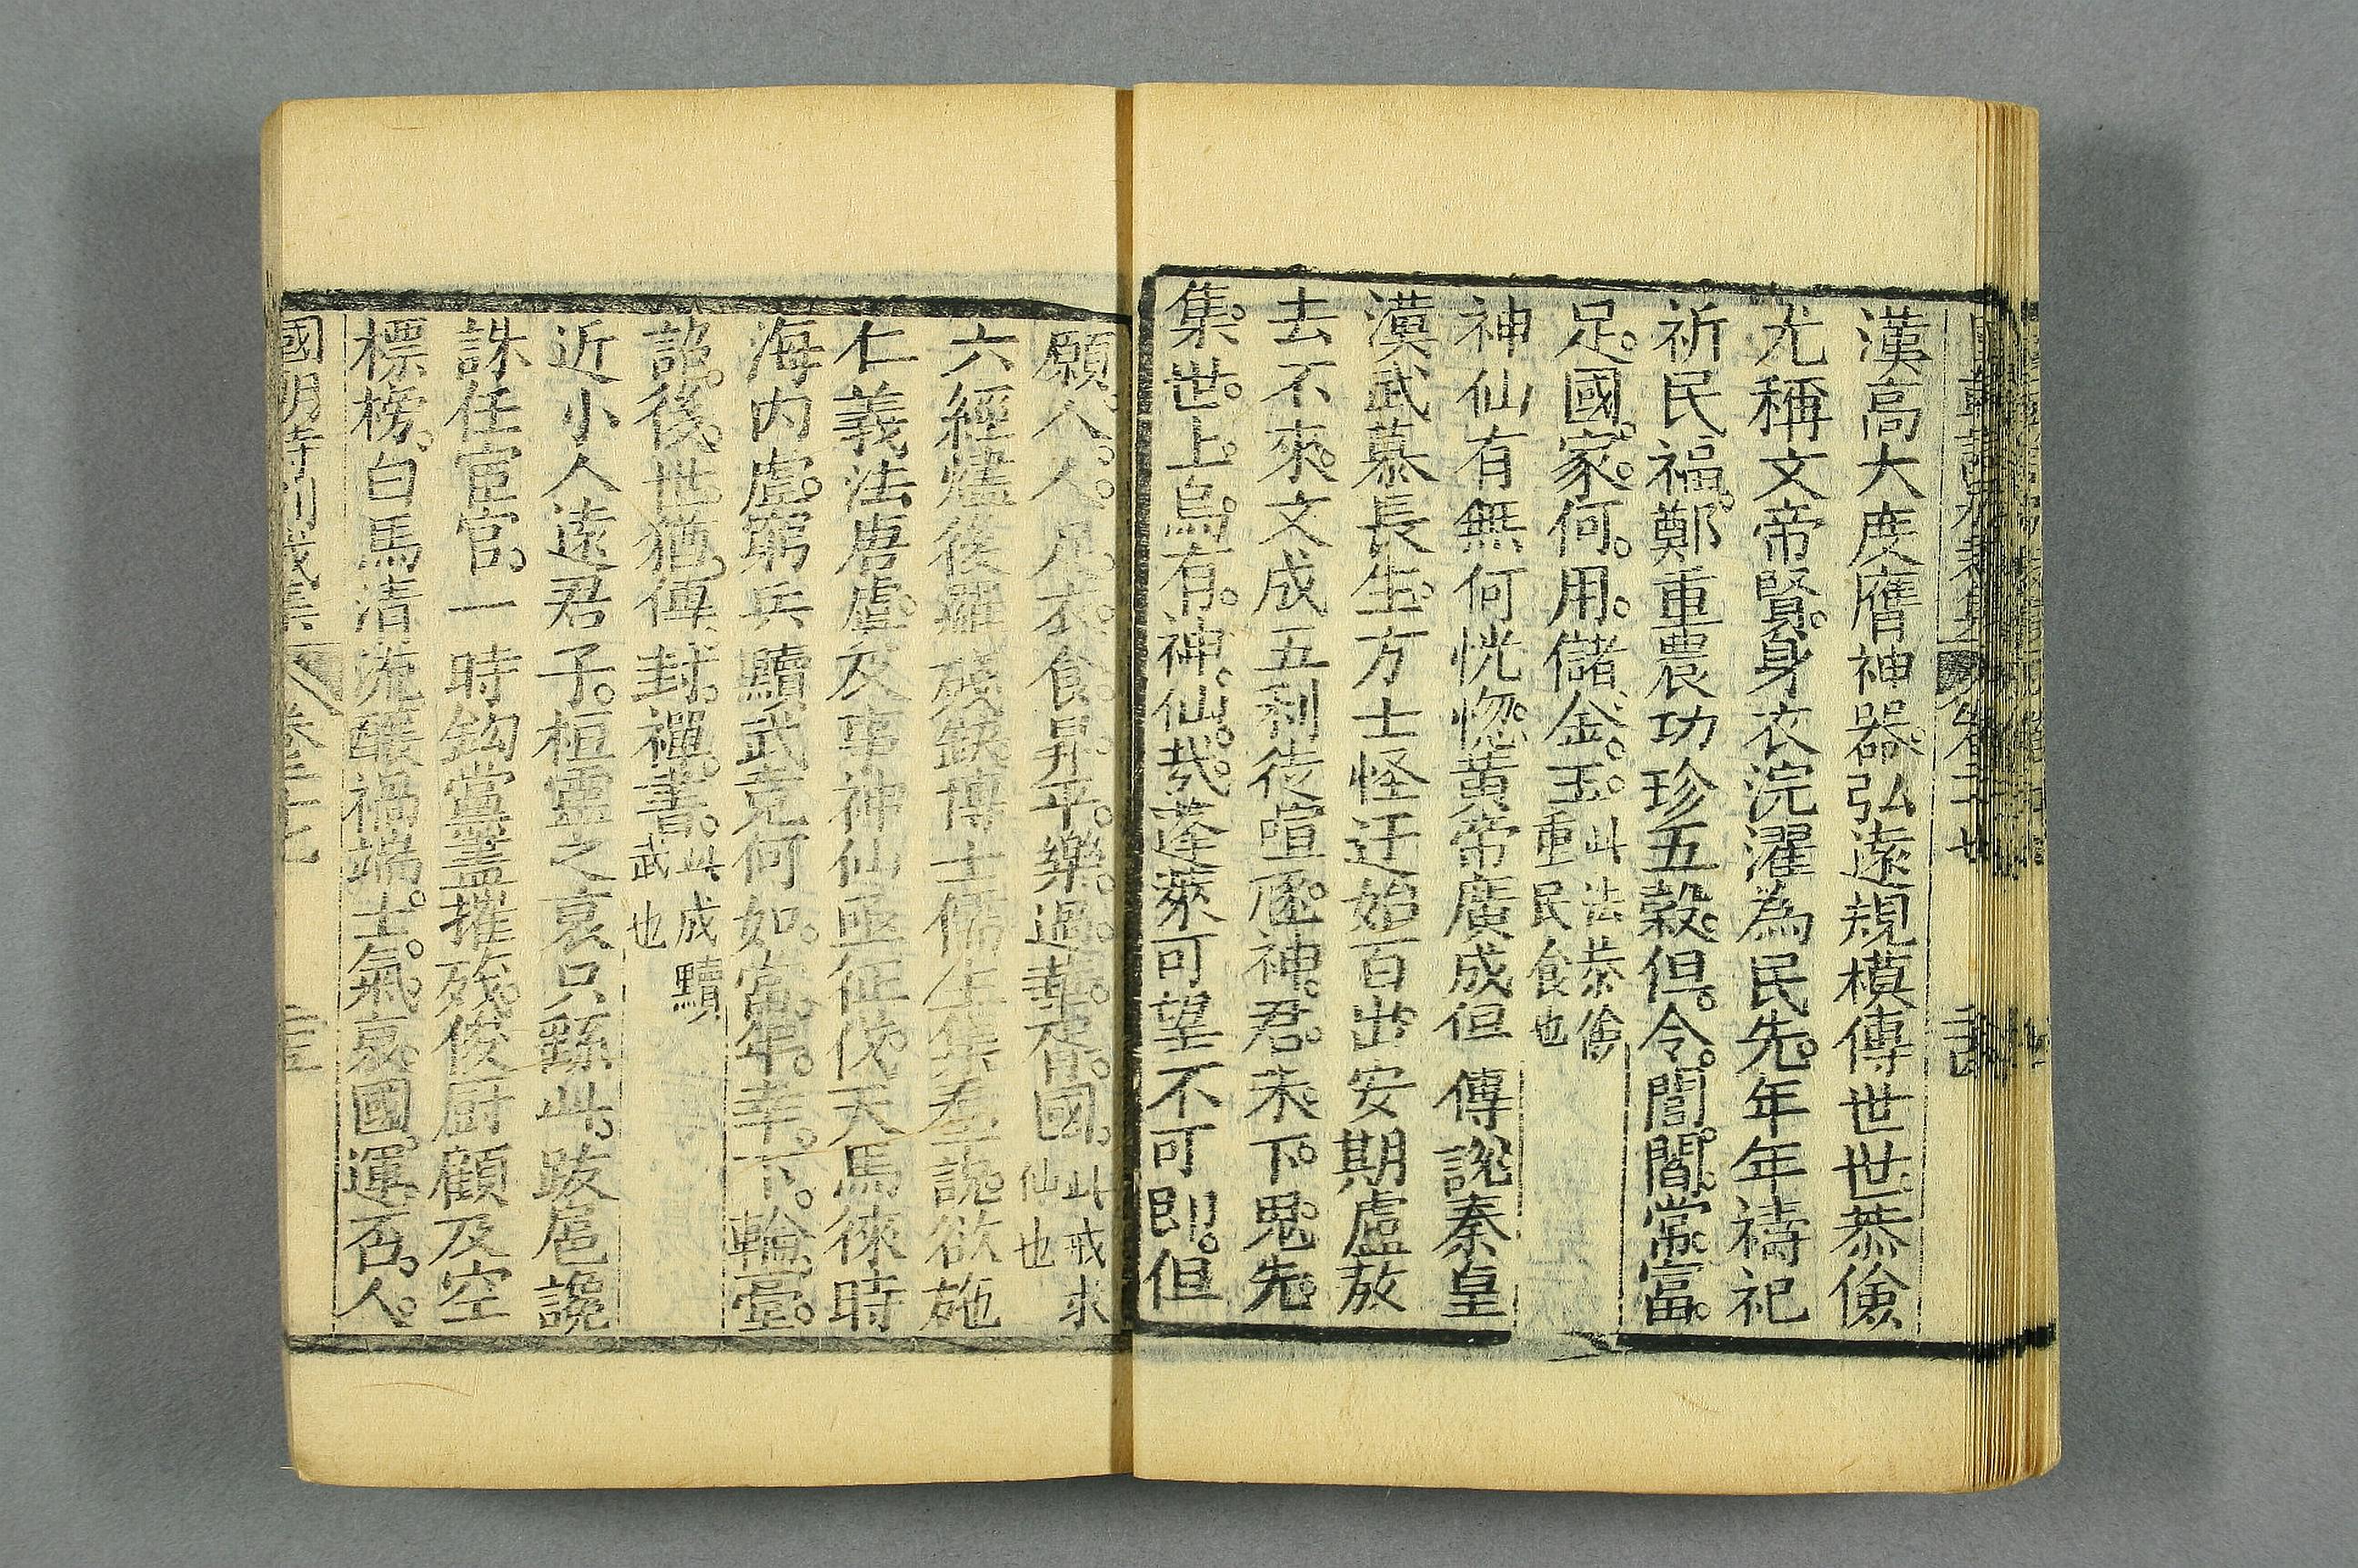 漢高大度膺神器弘遠規模傳世世恭儉
尤稱文帝賢身衣浣濯為民先年年禱祀
祈民福鄭重農功珍五穀但令閭閻常富
足國家何用儲金玉此法恭儉重民食也
神仙有無何恍惚黃帝廣成但傳說秦皇
漢武慕長生方士怪迂始百出安期盧敖
去不來文成五利徒喧豗神君未下鬼先
集世上烏有神仙哉蓬萊可望不可即但
願人人足衣食昇平樂過華胥國此戒求仙也
六經燼後羅殘缺博士儒生集羣說欲施
仁義法唐虞友事神仙亟征伐天馬徠時
海內虛窮兵黷武竟何如當年幸下輪臺
詔後世猶傳封禪書此成黷武也
近小人遠君子桓靈之哀只繇此跋扈讒
誅任宦官一時鈎黨盡摧殘俊厨顧及空
標榜白馬清流釀禍端士氣哀國運否人
國朝詩別裁集 卷三十七